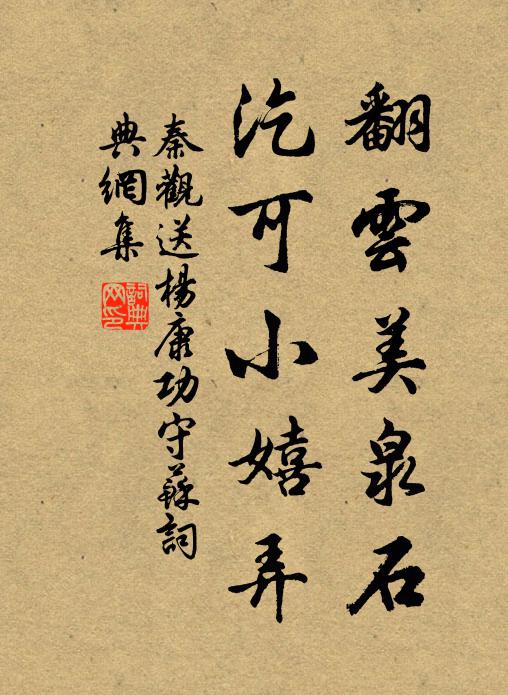 翻雲美泉石
汔可小嬉弄
秦觀送楊康功守蘇詞
典網集
詞典網印